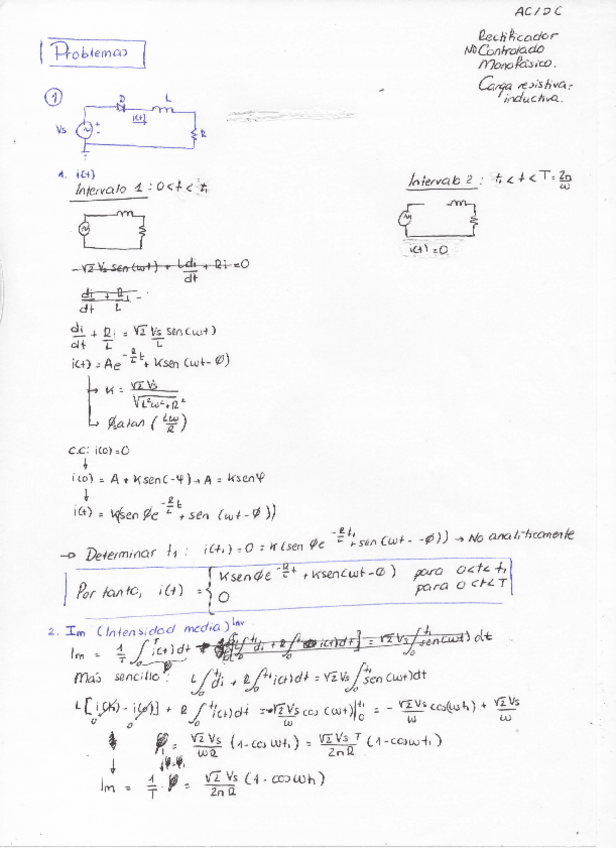 AC/DC
Problemas
Rectificador
NO Controlado
Monofásico.
Carga resistiva-
inductiva.
①
D
L
Vs
+
-
i(t)
R
1. i(t)
Intervalo 1 : 0<t<t₁
Intervalo 2 : t₁<t<T=2π/ω
i(t)=0
-√2 Vs sen(ωt) + L di/dt + Ri=0
di/dt + R/L i =
di/dt + Ri/L = √2 Vs/L sen(ωt)
i(t)= Ae^(-R/L t) + K sen(ωt-Ø)
K = √2 Vs/√(L²ω²+R²)
Øatan (Lω/R)
C.C: i(0)=0
i(0) = A + K sen(-φ)→A = K senφ
i(t) = K(sen Øe^(-R/L t) + sen (ωt-Ø))
→ Determinar t₁ : i(t₁)=0 = K(sen Øe^(-R/L t₁)+sen(ωt--Ø)) → No analíticamente
Por tanto, i(t) = { K sen Øe^(-R/L t) + K sen(ωt-Ø) para 0<t<t₁
0 para 0<t<T
2. Im (Intensidad media)
Im = 1/T ∫₀ᵀ i(t)dt
Más sencillo: L∫₀^t₁ di + R∫₀^t₁ i(t)dt = √2 Vs ∫₀^t₁ sen(ωt)dt
L[i(t₁)-i(0)] + R ∫₀^t₁ i(t)dt = -√2 Vs/ω cos(ωt)|₀^t₁ = - √2 Vs/ω cos(ωt₁) + √2 Vs/ω
= √2 Vs/ωR (1-cos ωt₁) = √2 Vs T/2πR (1-cosωt₁)
Im = 1/T · = √2 Vs/2πR (1-cosωt₁)